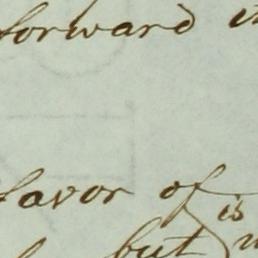 forward
favor of is
but